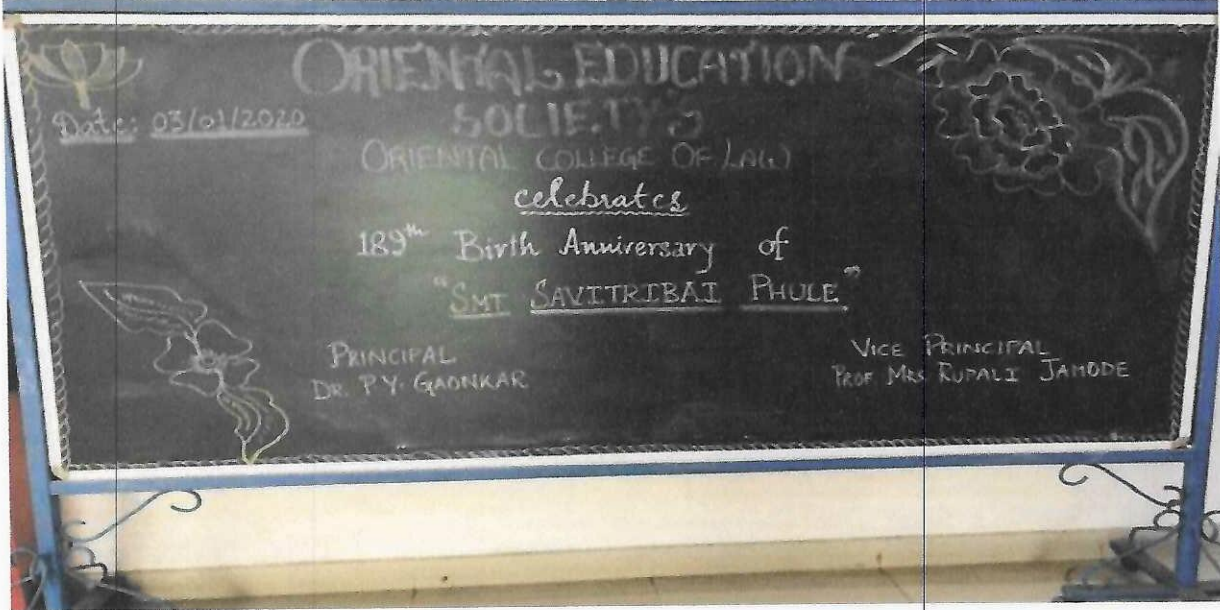 ORIENTAL EDUCATION
SOCIETY'S
Date: 03/01/2020
ORIENTAL COLLEGE OF LAW
celebrates
189th Birth Anniversary of
"SMT SAVITRIBAI PHULE"
PRINCIPAL
DR. P.Y. GAONKAR
VICE PRINCIPAL
PROF MRS RUPALI JAMODE